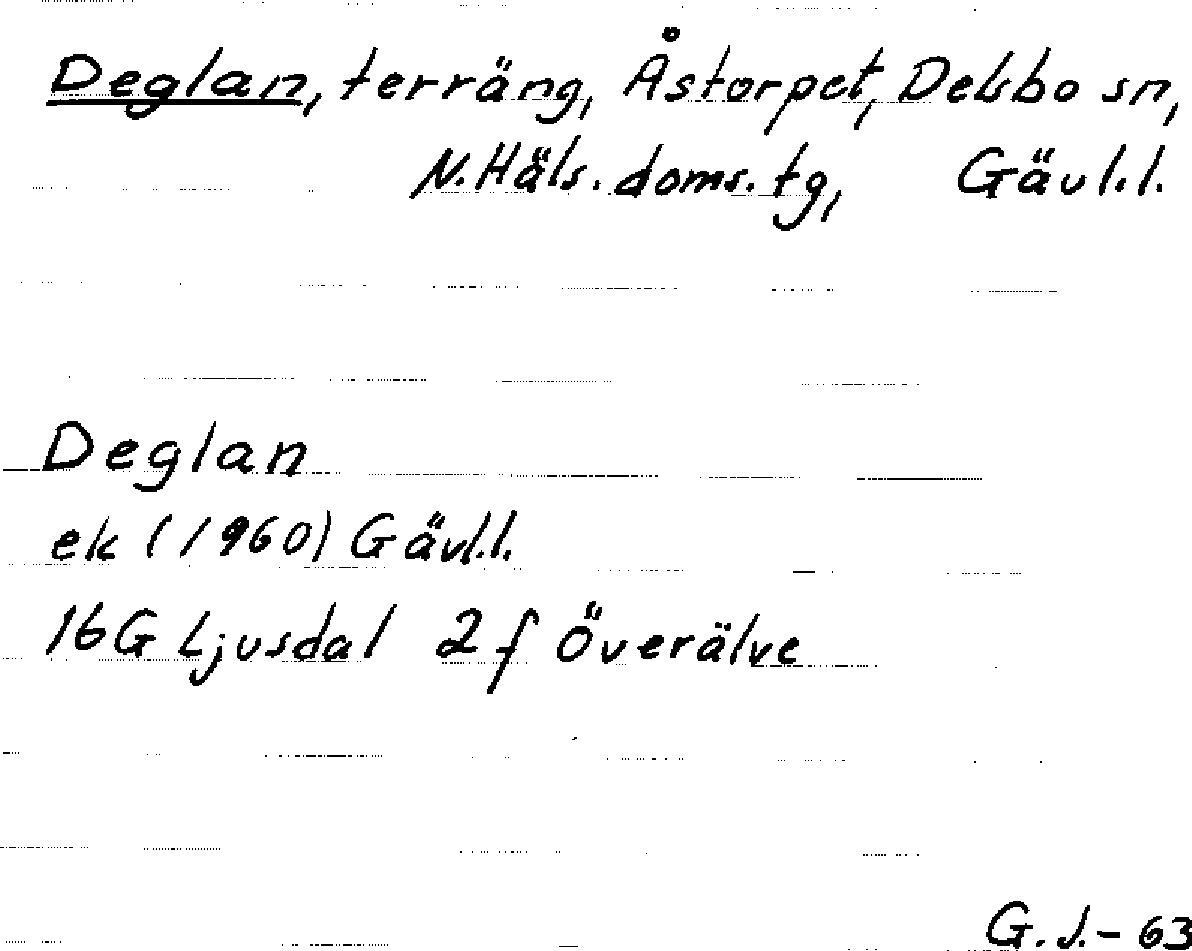 Deglan, terräng, Åstorpet, Delsbo sn,
N. Häls. doms. tg, Gävl.l.
Deglan
ek (1960) Gävl.l.
16G Ljusdal 2f Överälve
G.J.-63